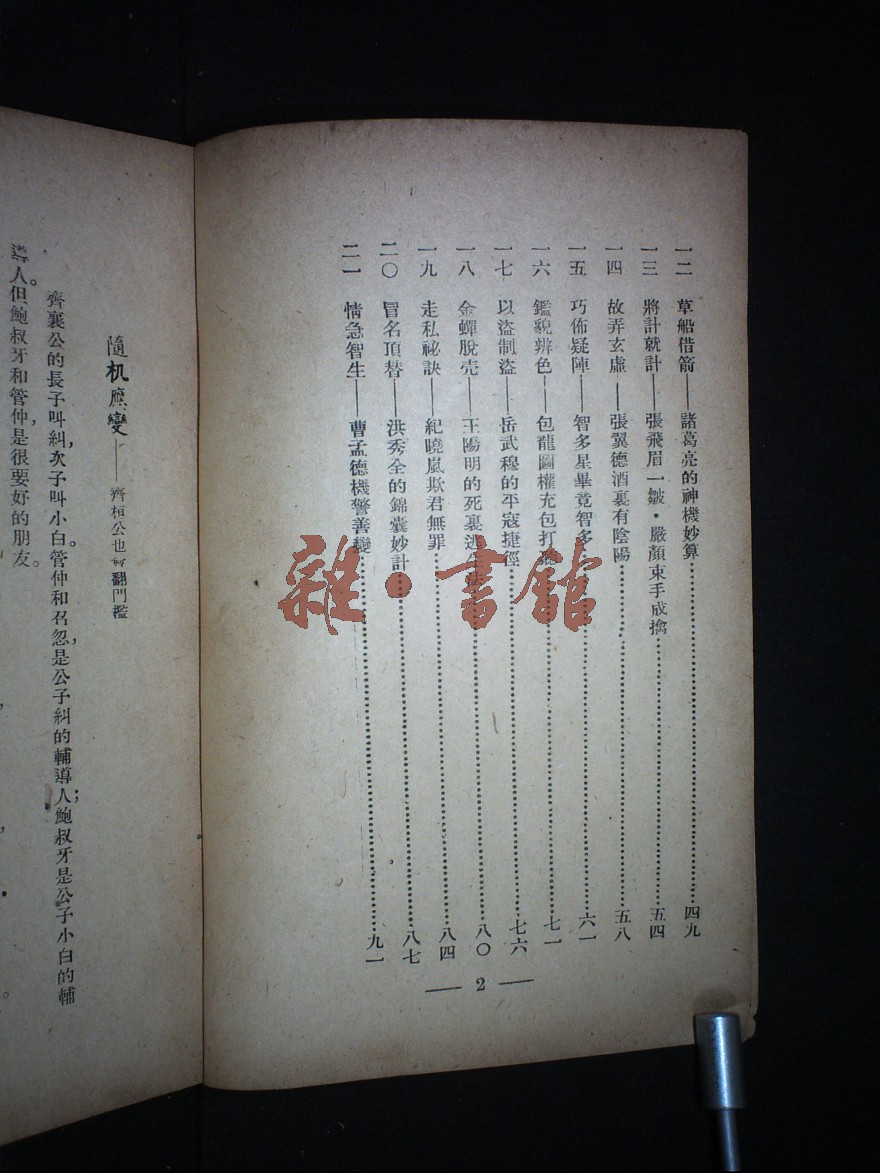 一二 草船借箭——諸葛亮的神機妙算…………四九
一三 將計就計——張飛眉一皺·嚴顏束手成擒…………五四
一四 故弄玄虛——張翼德酒裏有陰陽…………五八
一五 巧佈疑陣——智多星畢竟智多…………六一
一六 鑑貌辨色——包龍圖權充包打聽…………七一
一七 以盜制盜——岳武穆的平寇捷徑…………七六
一八 金蟬脫壳——王陽明的死裏逃生法…………八〇
一九 走私祕訣——紀曉嵐欺君無罪…………八四
二〇 冒名頂替——洪秀全的錦囊妙計…………八七
二一 情急智生——曹孟德機警善變…………九一
— 2 —
雜·書館
隨机應變——齊桓公也會翻門檻
齊襄公的長子叫糾，次子叫小白。管仲和召忽，是公子糾的輔導人；鮑叔牙是公子小白的輔
導人。但鮑叔牙和管仲，是很要好的朋友。